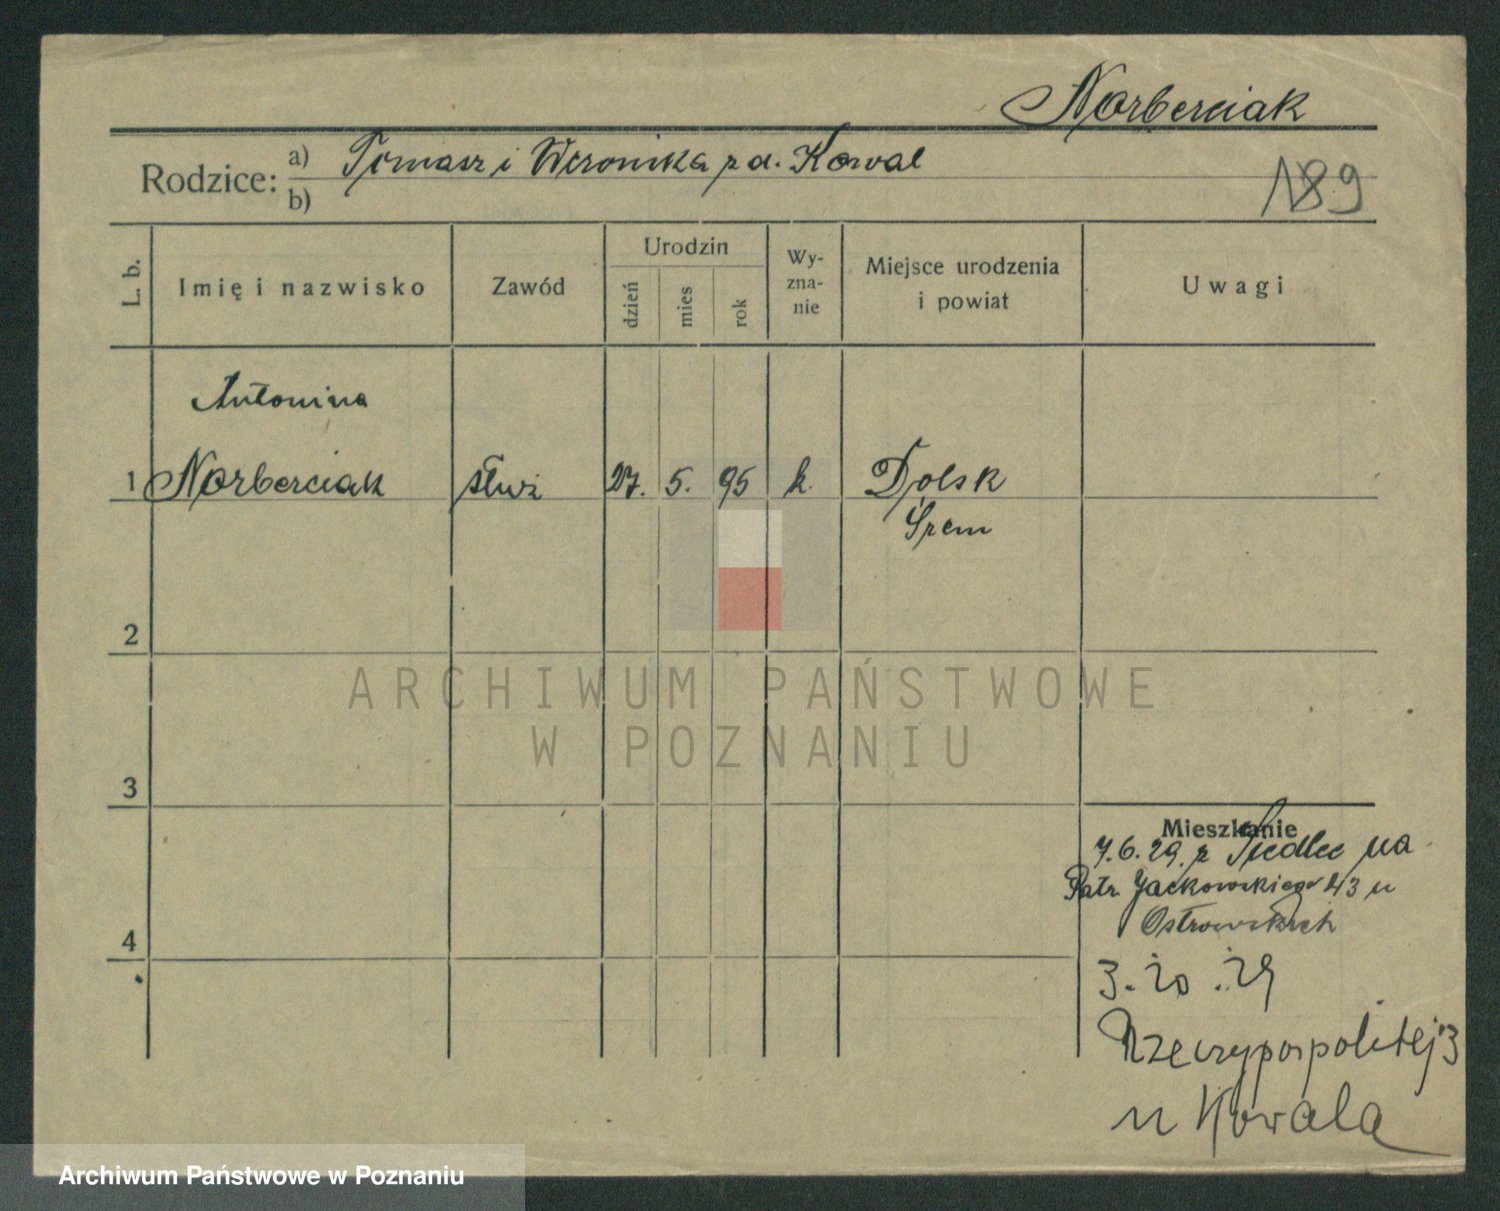 Norberciak
Rodzice: a) Tomasz i Weronika z d. Kowal
b)
189
L. b.
Imię i nazwisko
Zawód
Urodzin
dzień
mies
rok
Wy-
zna-
nie
Miejsce urodzenia
i powiat
Uwagi
Antonina
1 Norberciak służ 27. 5. 95 k. Dolsk
Śrem
2
ARCHIWUM PAŃSTWOWE
W POZNANIU
3
Mieszkanie
7.6.29. z Siedlec na
Patr. Jackowskiego 43 u
Ostrowskich
4
3.10.29
Rzeczypospolitej 3
u Kowala
Archiwum Państwowe w Poznaniu